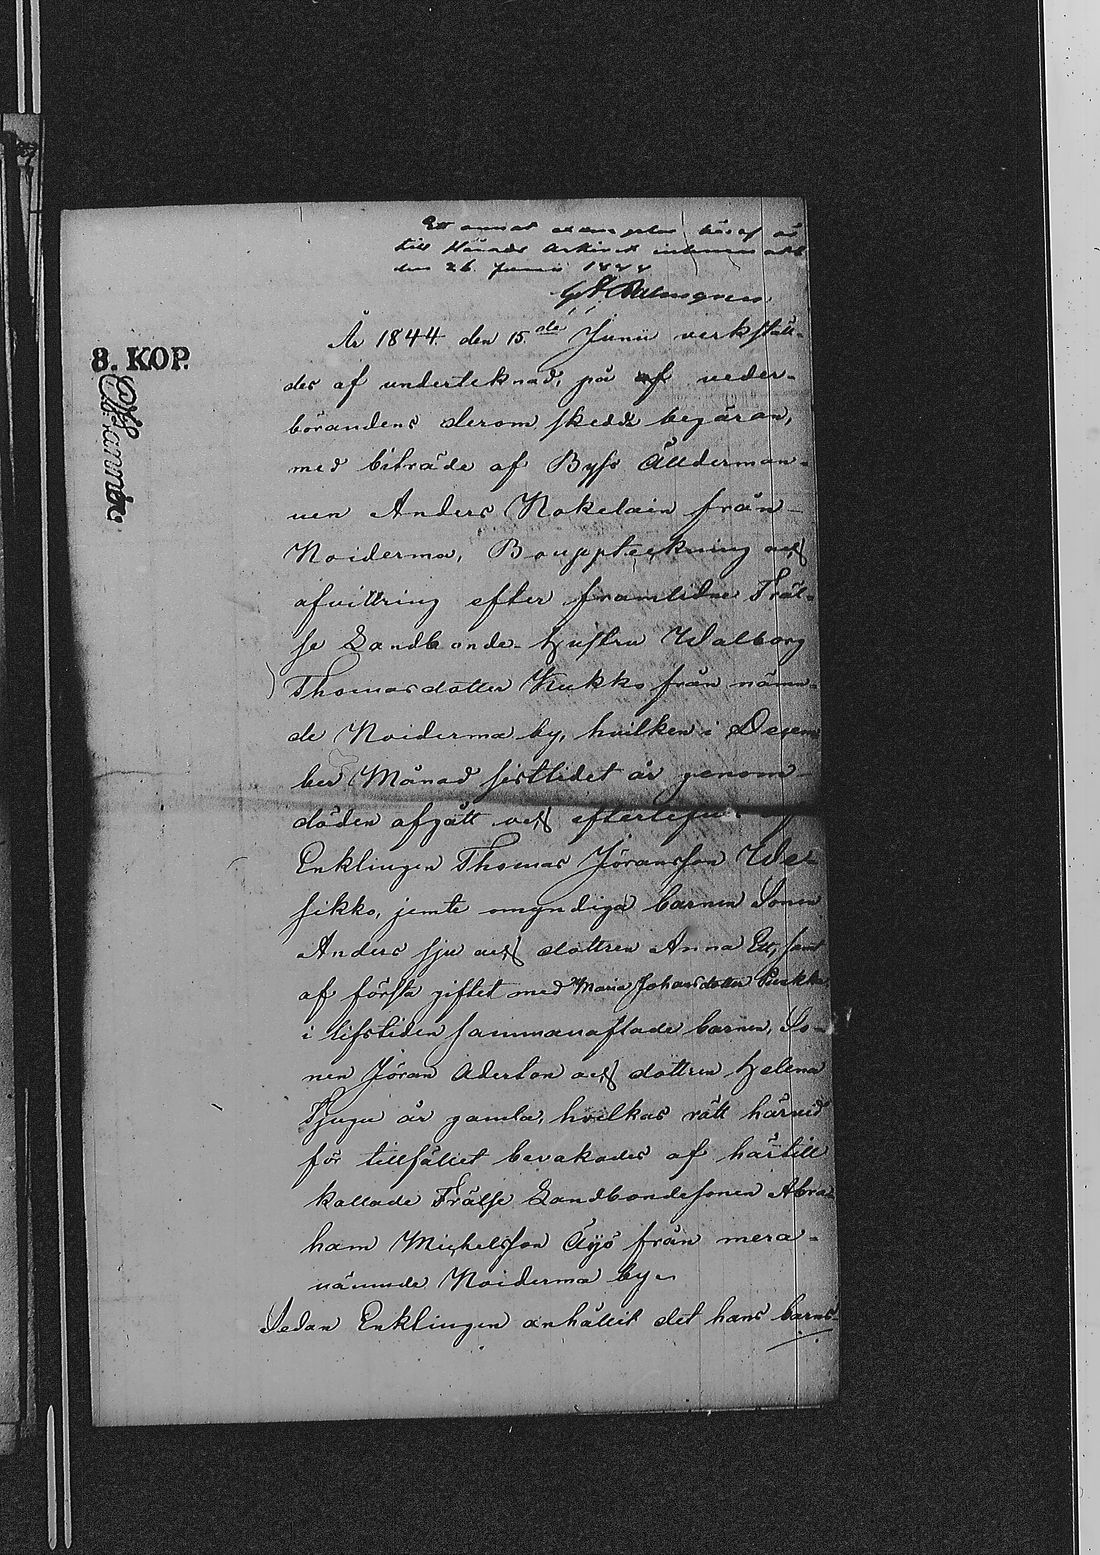 Ett annat exemplar häraf är
till Härads Arkivet inlemnadt
den 26 Junii 1844
8. KOP.
År 1844 den 15de Junii verkstäl-
des af underteknad, på af veder-
börandens derom skedde begäran,
med biträde af Byss Ålderman-
nen Anders Kokelain från
Noiderma, Bouppteckning och
afvittring efter framlidne Fräl-
se Landbonde-hustru Walborg
Thomasdotter Kukko från nämn-
de Noiderma by, hvilken i Decem
ber Månad sistlidet år genom
döden afgått och efterlefvt
Enklingen Thomas Jöransson We-
sikko, jemte omyndiga barnen Sonen
Anders sju och dottren Anna Ett, samt
af första giftet med Maria Johansdotter
i lifstiden sammanaflade barnen, So-
nen Jöran Aderton och dottren Helena
Tjugu år gamla, hvilkas rätt härvid
för tillfället bevakades af härtill
kallade Frälse Landbondesonen Abra
ham Michelsson Äijö från mera-
nämnde Noiderma by.
Sedan Enklingen anhållit det hans barns